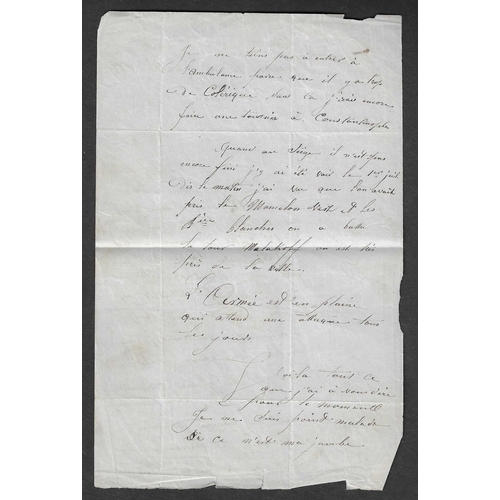 Je ne tiens pas à entrer à
l'ambulance parce que il y a trop
de Colérique sans ça j'irais encore
faire une tournée à Constantinople
Quand au Siége il n'est pas
encore fini j'y ai été voir le 1er juin
Dès le matin j'ai vu que l'on avait
pris le Mamelon Vert et les
blanches on a
la tour Malakoff on est très
près de la
L'Armée est en plaine
qui attend une attaque tous
les jours
Voila tout ce
que j'ai à vous dire
pour le moment
Je ne suis point malade
Si ce n'est ma jambe